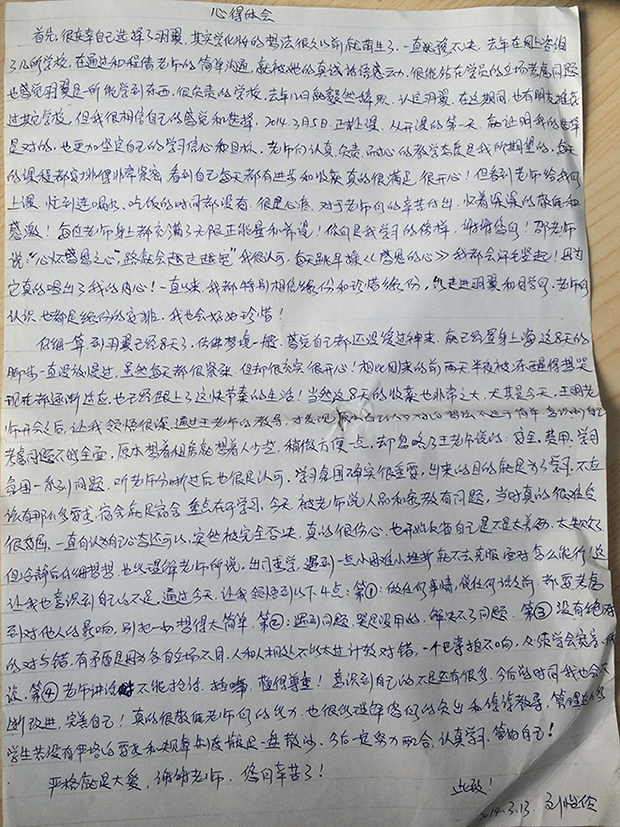 心得体会
首先,很庆幸自己选择了羽翼,其实学化妆的想法很久以前就萌生了,一直犹豫不决,去年在网上咨询
了几所学校,在通过和程倩老师的简单沟通,就被她的真诚话语感动,很能站在学员的立场考虑问题
也感觉羽翼是一所能学到东西,很负责的学校,去年12月份毅然辞职,认定羽翼,在这期间,也有朋友推荐
过其它学校,但我很相信自己的感觉和选择,2014.3月5日正式上课,从开课的第一天,就证明我的选择
是对的,也更加坚定自己的学习信心和目标,老师们认真负责,耐心的教学态度是我所期望的,每天
的课程都安排得非常紧密,看到自己每天都有进步和收获真的很满足,很开心!但看到老师给我们
上课,忙到连喝水、吃饭的时间都没有,很是心疼,对于老师们的辛苦付出,怀着深深的敬佩和
感激!每位老师身上都充满了无限正能量和希望!你们是我学习的榜样,谢谢您们!邵老师
说:“心怀感恩之心”,路就会越过越宽”我很认可,每天跳早操《感恩的心》我都会汗毛竖起!因为
它真的唱出了我的内心!一直以来,我都特别相信缘份和珍惜缘份,能走进羽翼和同学们、老师们
认识也都是缘份的安排,我也会好好珍惜!
仔细一算,到羽翼已经8天了,仿佛梦境一般,感觉自己都还没缓过神来,就已经置身上海这8天的
脚步一直没放慢过,虽然每天都很紧张,但却很充实很开心!相比回来的前两天半夜被冻醒得想哭
现在都逐渐适应,也已经跟上了这快节奏的生活!当然这8天的收获也非常之大,尤其是今天,王明老
师开会之后,让我领悟很深,通过王老师的教导,才发现
考虑问题不够全面,原本想着租房就想着人少点,稍微方便一点,却忽略了王老师说的:安全、费用、学习
氛围一系列问题,听老师分晰过后也很是认可,学习氛围确实很重要,出来的目的就是为了学习,不应
该有那么多要求,宿舍就是宿舍,重点在于学习,今天,被老师说人品和家教有问题,当时真的很难受
很委屈,一直自认为自己心态还可以,突然被完全否决,真的很伤心,也开始反省自己是不是太差劲,太失败了
但冷静后仔细想想,也能理解老师所说,出门求学,遇到一点小困难小挫折就不去克服,面对怎么能行!这
让我也意识到自己的不足,通过今天,让我领悟到以下几点:第①:做任何事情,说任何话之前,都要考虑
到对他人的影响,别把一切想得太简单,第②:遇到问题,哭是没用的,解决不了问题,第③没有绝对
的对与错,有矛盾是因为各自立场不同,人和人相处不能太过计较对错,一个巴掌拍不响,必须学会宽容
谅。第④老师讲话时不能抢话,插嘴,懂得尊重!意识到自己的不足还有很多,今后的时间我也会不
断改进,完善自己!真的很敬佩老师们的能力,也很能理解您们的负出和谆谆教导,管理这么多
学生若没有严格的要求和规章制度那就是一盘散沙,今后一定努力配合,认真学习,管好自己!
严格就是大爱,谢谢老师,您们辛苦了!
此致!
2014.3.13